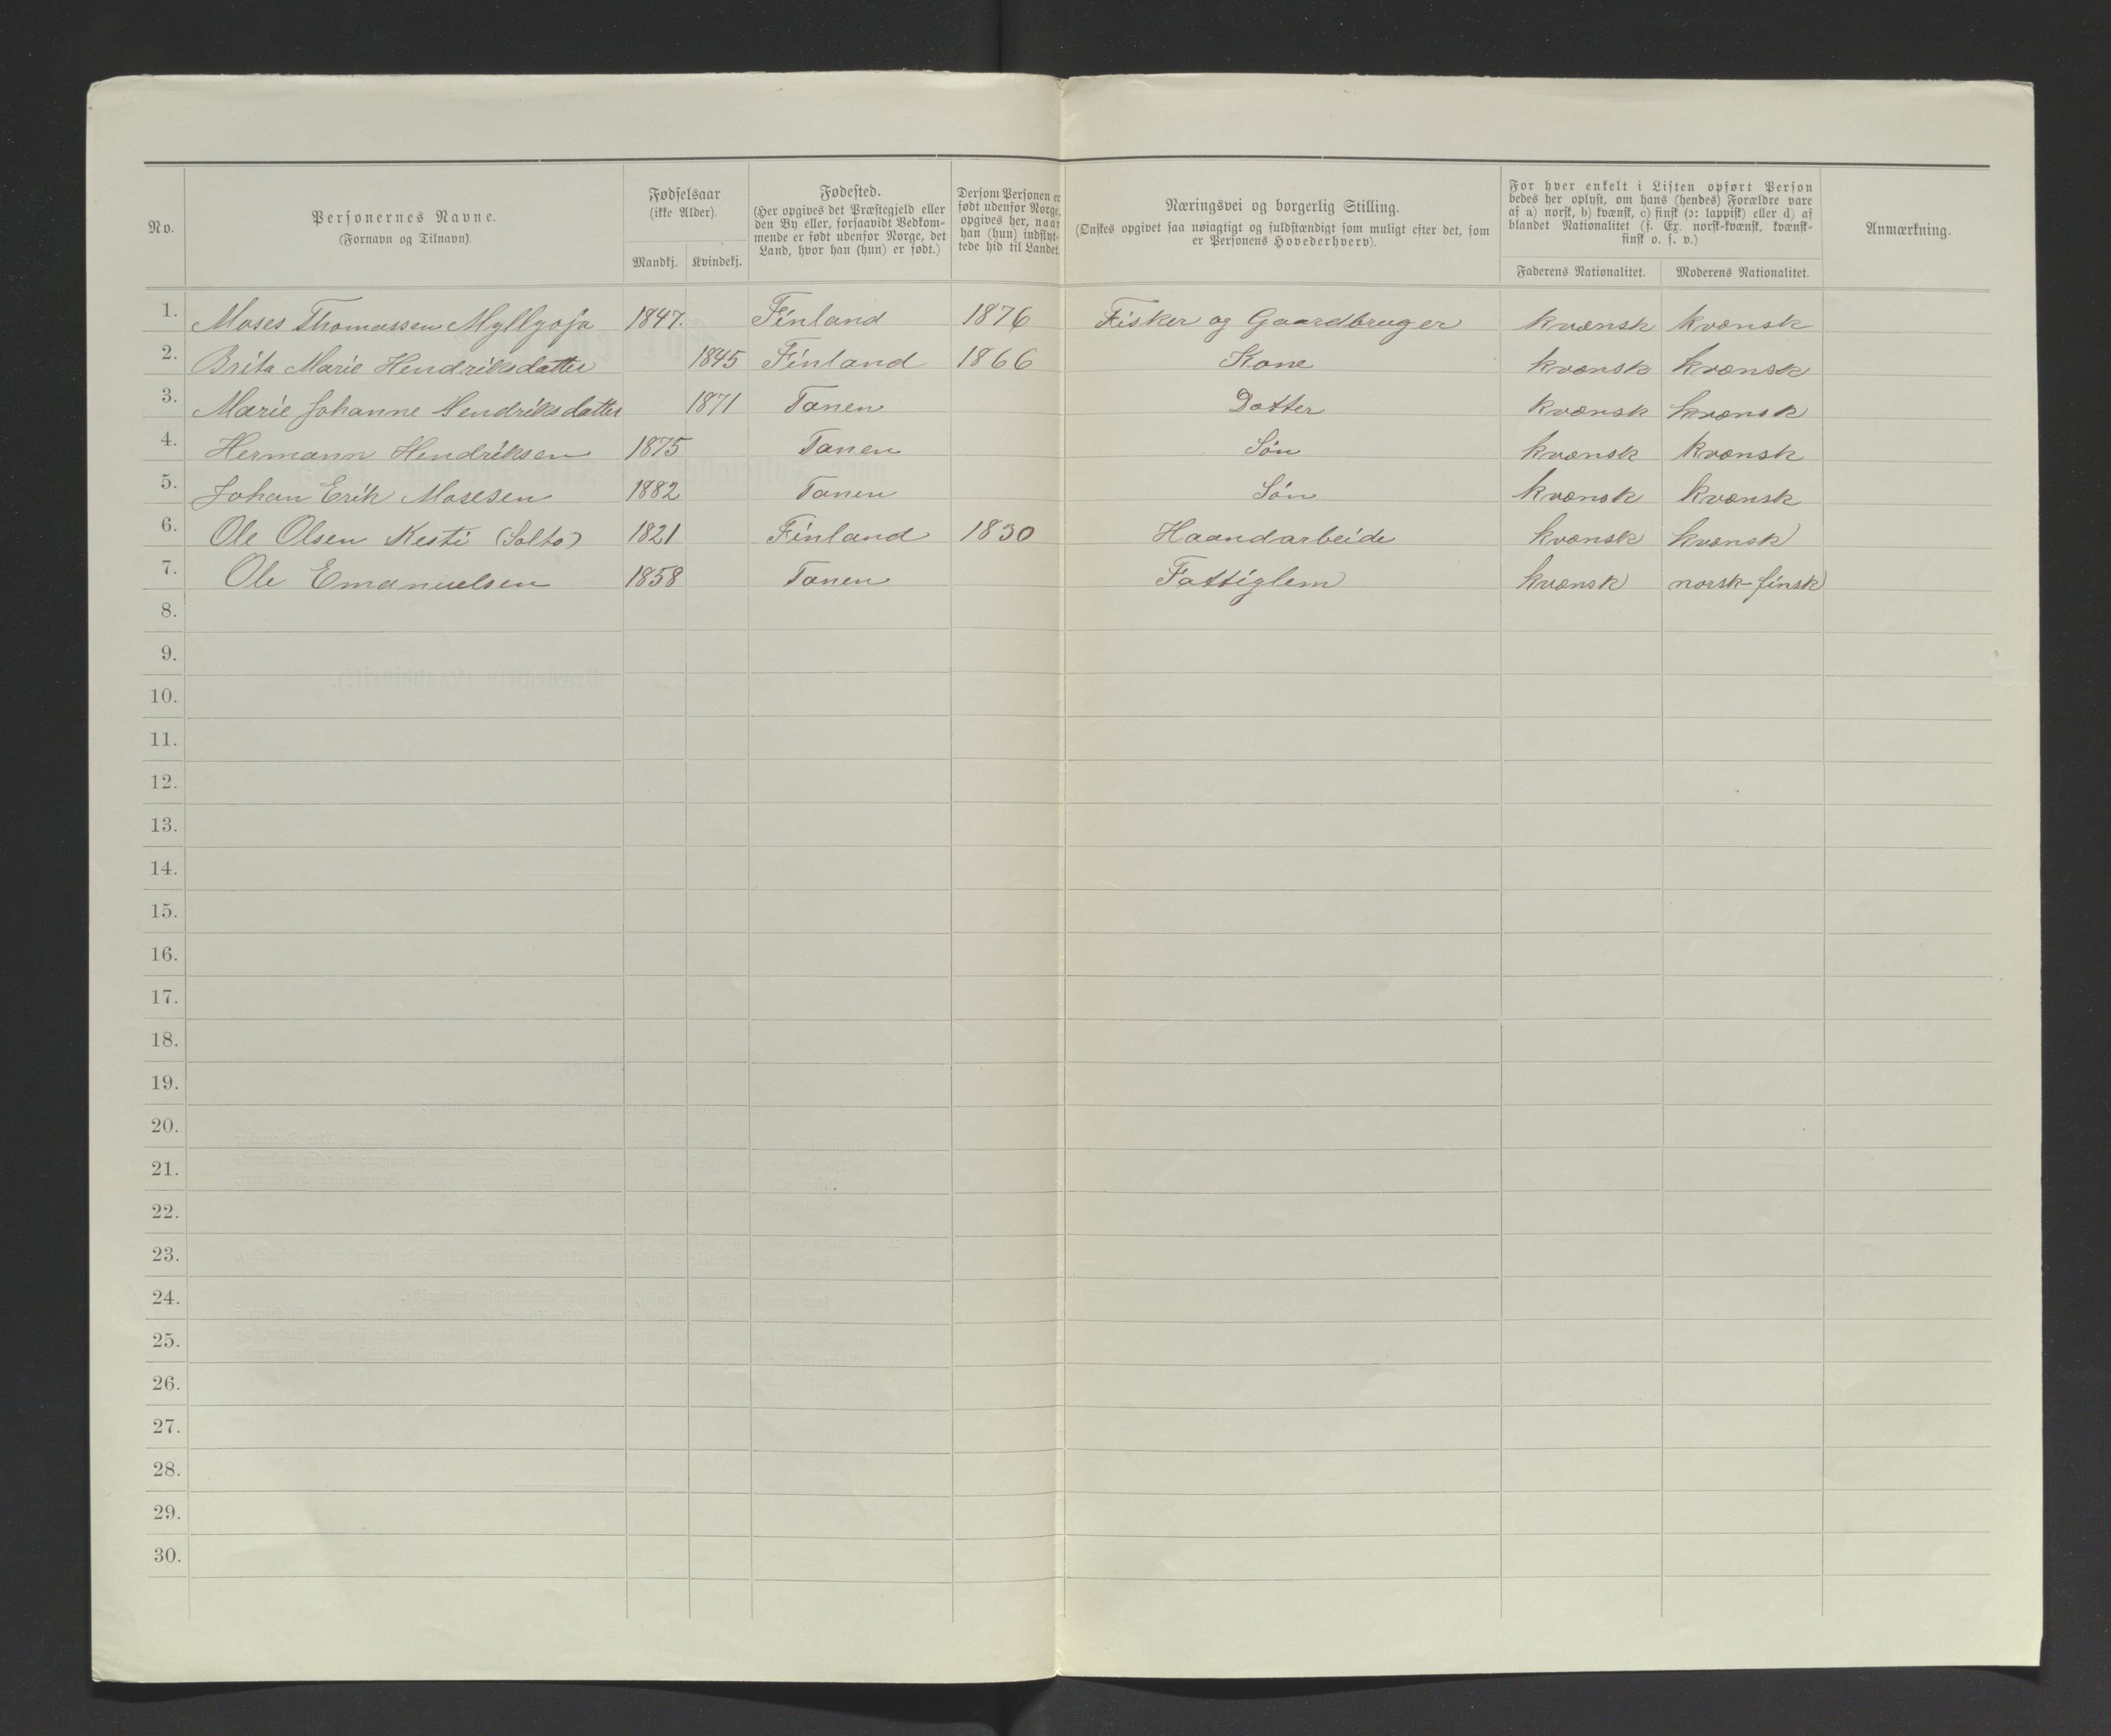 No.
Personernes Navne.
(Fornavn og Tilnavn).
Fødselsaar
(ikke Alder).
Mandkj. Kvindekj.
Fødested.
(Her opgives det Præstegjeld eller
den By eller, forsaavidt Vedkom-
mende er født udenfor Norge, det
Land, hvor han (hun) er født.)
Dersom Personen er
født udenfor Norge,
opgives her, naar
han (hun) indflyt-
tede hid til Landet.
Næringsvei og borgerlig Stilling.
(Ønskes opgivet saa nøiagtigt og fuldstændigt som muligt efter det, som
er Personens Hovederhverv).
For hver enkelt i Listen opført Person
bedes her oplyst, om hans (hendes) Forældre vare
af a) norsk, b) kvænsk, c) finsk (ɔ: lappisk) eller d) af
blandet Nationalitet (f. Ex. norsk-kvænsk, kvænsk-
finsk o. s. v.)
Faderens Nationalitet. Moderens Nationalitet.
Anmærkning.
1. Moses Thomassen Myllyoja 1847. Finland 1876 Fisker og Gaardbruger kvænsk kvænsk
2. Brita Marie Hendriksdatter 1845 Finland 1866 Kone kvænsk kvænsk
3. Marie Johanne Hendriksdatter 1871 Tanen Datter kvænsk kvænsk
4. Hermann Hendriksen 1875 Tanen Søn kvænsk kvænsk
5. Johan Erik Mosesen 1882 Tanen Søn kvænsk kvænsk
6. Ole Olsen Kesti (Salto) 1821 Finland 1830 Haandarbeide kvænsk kvænsk
7. Ole Emanuelsen 1858 Tanen Fattiglem kvænsk norsk-finsk
8.
9.
10.
11.
12.
13.
14.
15.
16.
17.
18.
19.
20.
21.
22.
23.
24.
25.
26.
27.
28.
29.
30.